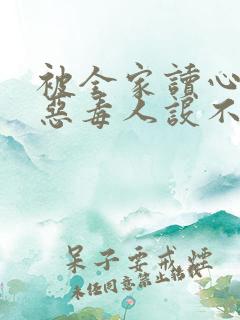 被全家讀心
惡毒人設不
呆子要戒煙
未经同意禁止转载